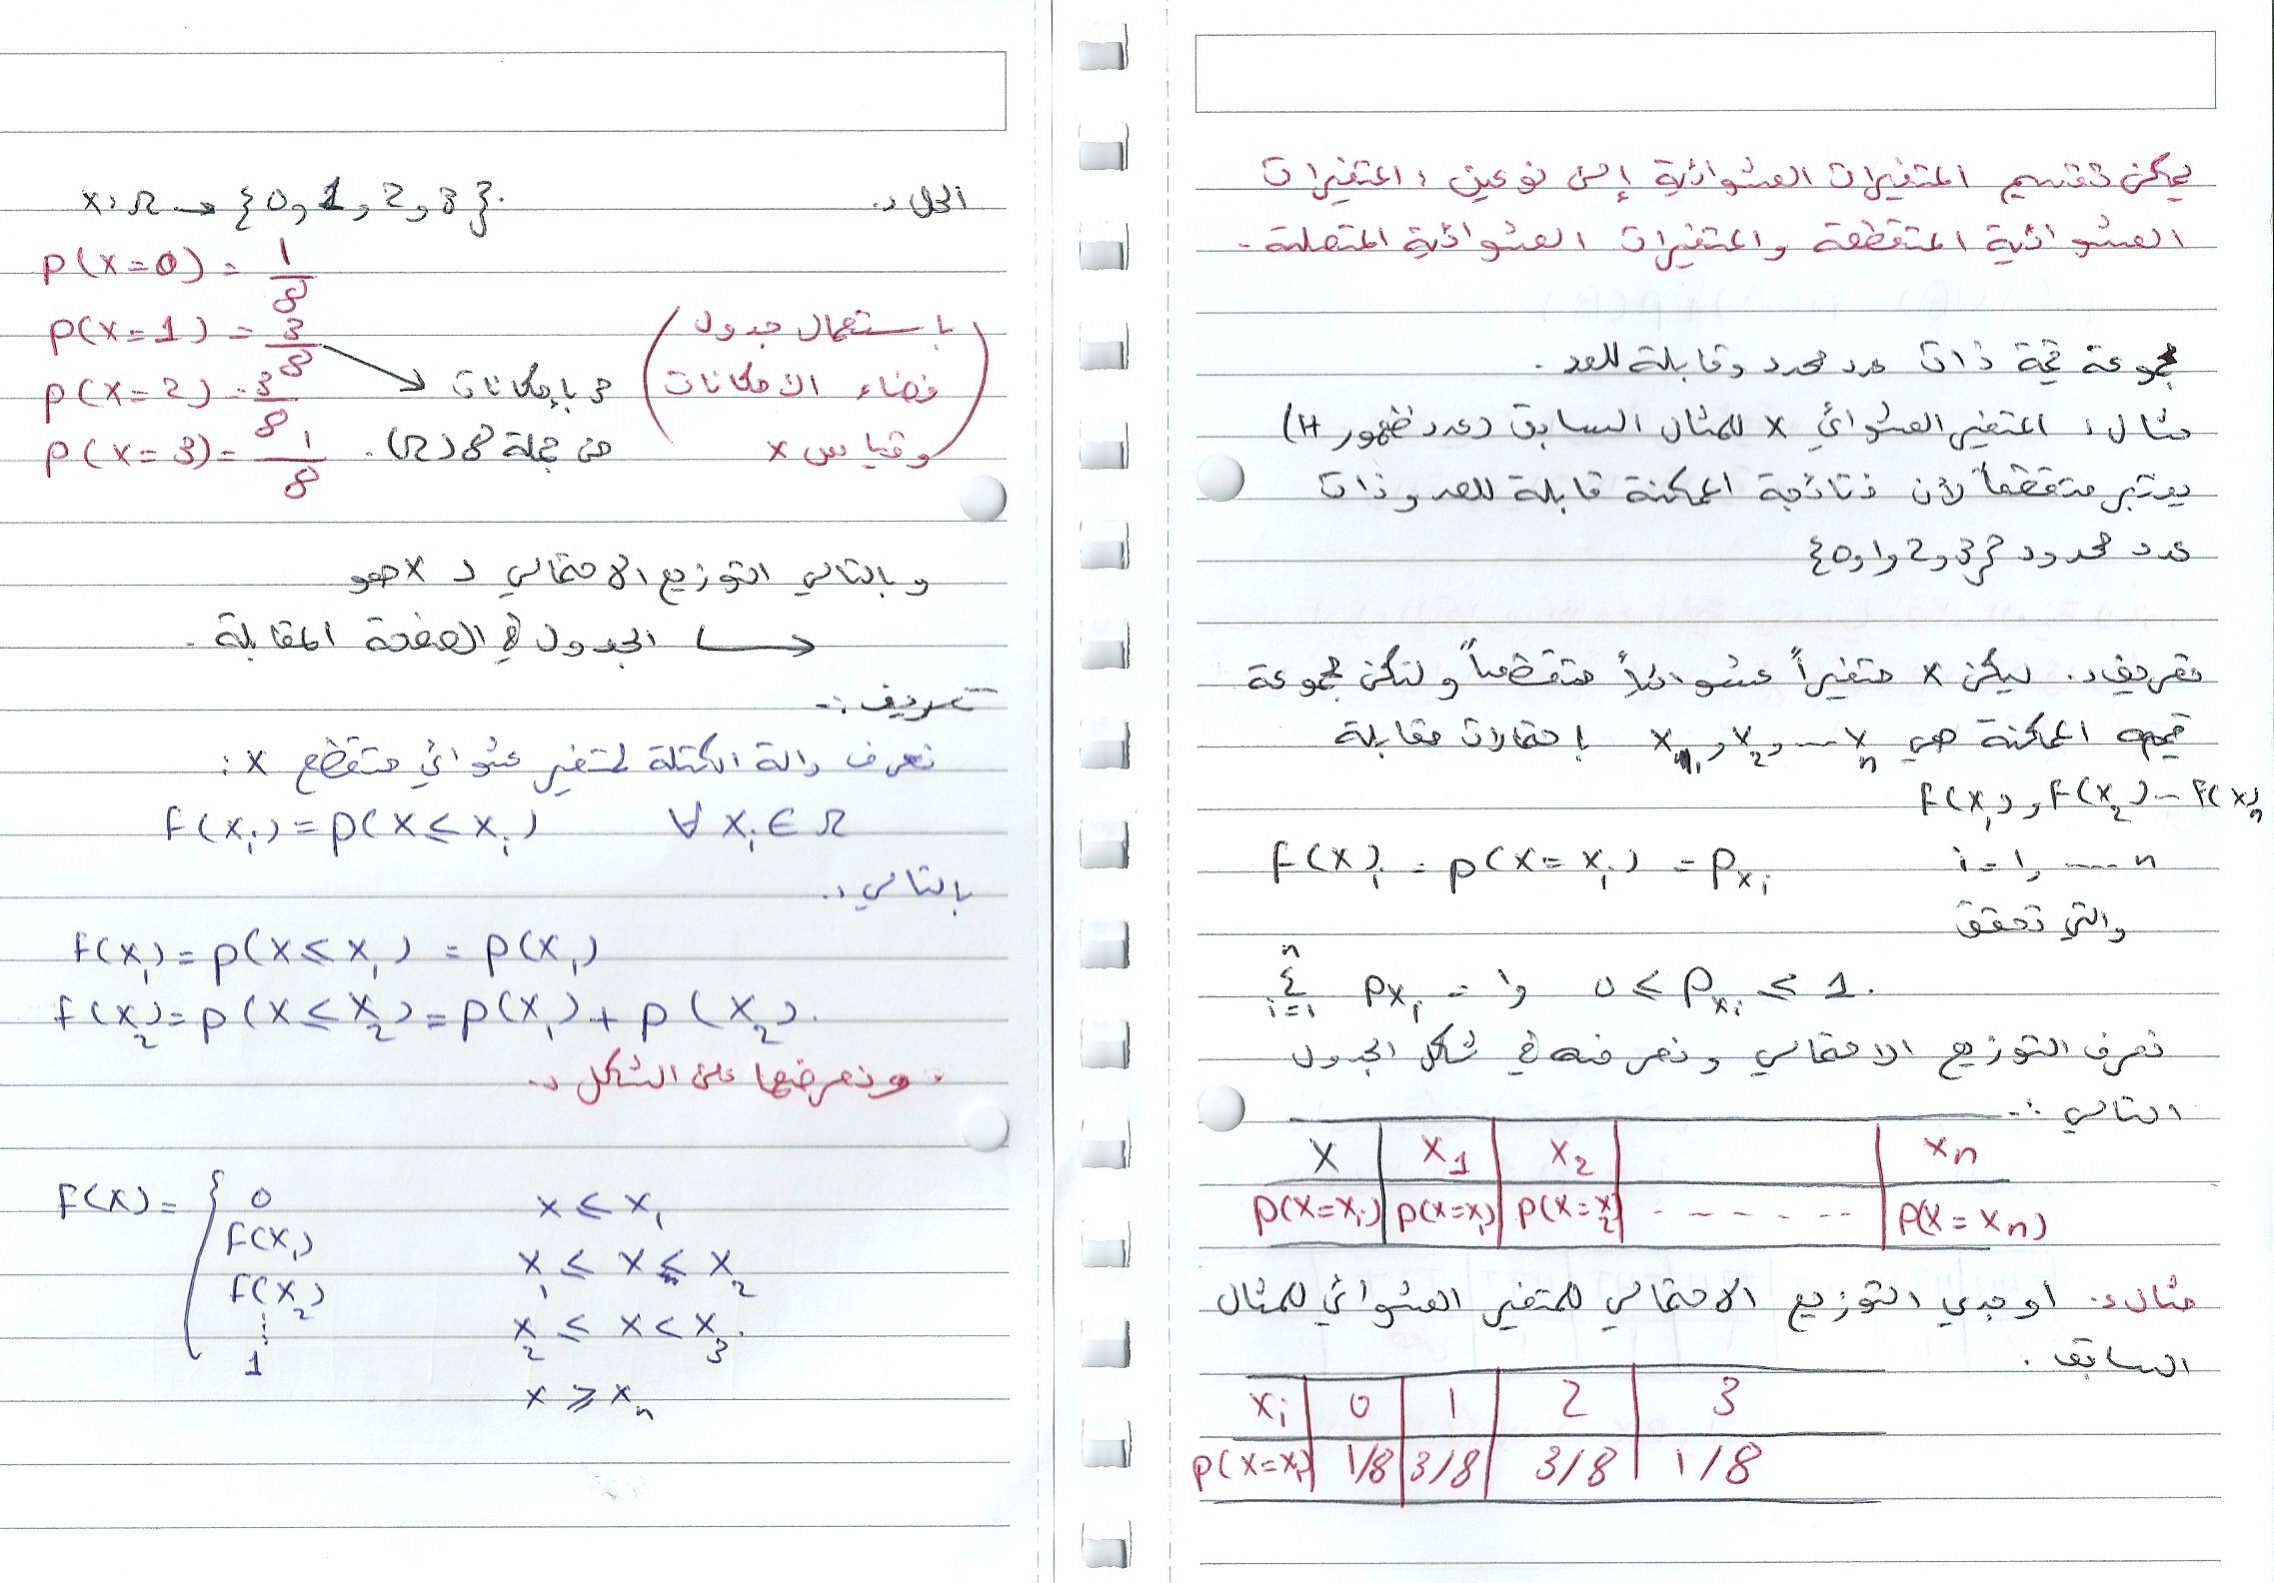 يمكن تقسيم المتغيرات العشوائية إلى نوعين : المتغيرات
العشوائية المتقطعة والمتغيرات العشوائية المتصلة .
مجموعة قيمة ذات عدد محدد وقابلة للعد .
مثال : المتغير العشوائي X للمثال السابق (عدد ظهور H)
يعتبر متقطعاً لأن نتائجة الممكنة قابلة للعد وذات
عدد محدود {0,1,2,3}
تعريف : ليكن X متغيراً عشوائياً متقطعاً ولتكن مجموعة
قيمه الممكنة هي x₁, x₂, ... xₙ بإحتمالات مقابلة
F(x₁), F(x₂) – F(xₙ)
F(x)ᵢ = P(X = xᵢ) = Pxᵢ i = 1, .... n
والتي تحقق
Σⁿᵢ₌₁ Pxᵢ = 1 و 0 ≤ Pxᵢ ≤ 1.
نعرف التوزيع الاحتمالي ونعرفه في شكل الجدول
التالي :-
X | x₁ | x₂ | | xₙ
P(X=xᵢ) | P(X=x₁) | P(X=x₂) | - - - - - - | P(X=xₙ)
مثال : اوجدي التوزيع الاحتمالي للمتغير العشوائي للمثال
السابق .
xᵢ | 0 | 1 | 2 | 3
P(X=xᵢ) | 1/8 | 3/8 | 3/8 | 1/8
الحل : X: Ω → {0, 1, 2, 3}.
P(X=0) = 1/8
P(X=1) = 3/8
P(X=2) = 3/8
P(X=3) = 1/8
3 بإمكانات
من جملة 8 (Ω).
(باستعمال جدول
فضاء الامكانات
وقياس X)
وبالتالي التوزيع الاحتمالي لـ X هو
الجدول في الصفحة المقابلة .
تعريف :-
نعرف دالة الكتلة لمتغير عشوائي متقطع X :
F(xᵢ) = P(X ≤ xᵢ) ∀ xᵢ ∈ Ω
بالتالي :
F(x₁) = P(X ≤ x₁) = P(x₁)
F(x₂) = P(X ≤ x₂) = P(x₁) + P(x₂).
ونعرضها على الشكل :
F(x) = { 0 x ≤ x₁
F(x₁) x₁ ≤ x ≤ x₂
F(x₂) x₂ ≤ x < x₃.
⋮
1 x ≥ xₙ